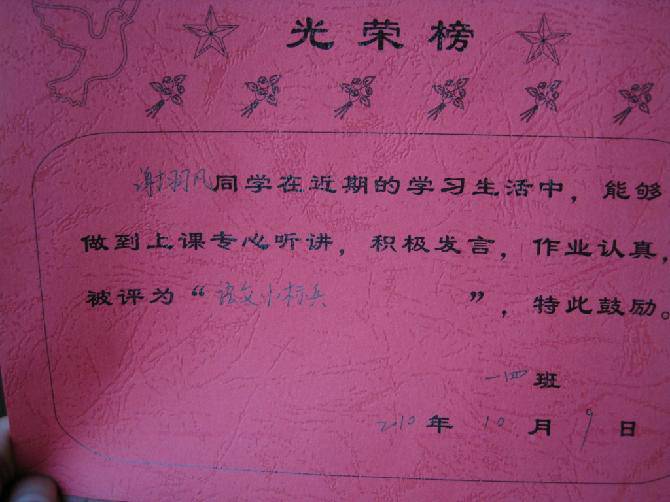 光荣榜
谢羽凡同学在近期的学习生活中，能够
做到上课专心听讲，积极发言，作业认真，
被评为“语文小标兵”，特此鼓励。
一四班
2010年10月9日